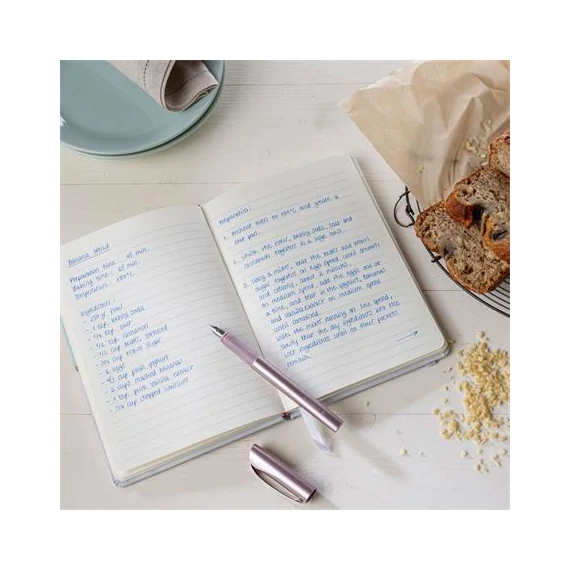 Banana Bread
Preparation time: 15 min.
Baking time: 65 min.
Temperature: 177°C
Ingredients:
- 250 gr flour
- 1 tsp. baking soda
- 1/4 tsp. salt
- 1/2 tsp. cinnamon
- 1/2 cup butter, softened
- 3/4 cup brown sugar
- 2 eggs
- 1/3 cup plain yoghurt
- 2 cups mashed bananas
- 1 tsp. pure vanilla extract
- 3/4 cup chopped walnuts
Preparation:
Preheat oven to 177°C and grease a
loaf pan.
1. Whisk the flour, baking soda, salt and
cinnamon together in a large bowl.
2. Using a mixer, beat the butter and brown
sugar together on high speed until smooth
and creamy, about 2 minutes.
on medium speed, add the eggs one at
a time, and beat in the yoghurt, bananas
and vanilla extract on medium speed
until combined.
With the mixer running on low speed,
slowly beat the dry ingredients into the
wet ingredients until no flour pockets
remain.